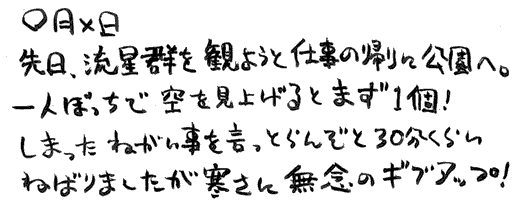 ○月×日
先日、流星群を観ようと仕事の帰りに公園へ。
一人ぼっちで空を見上げるとまず1個!
しまったねがい事を言っとらんぞと30分くらい
ねばりましたが寒さに無念のギブアップ!